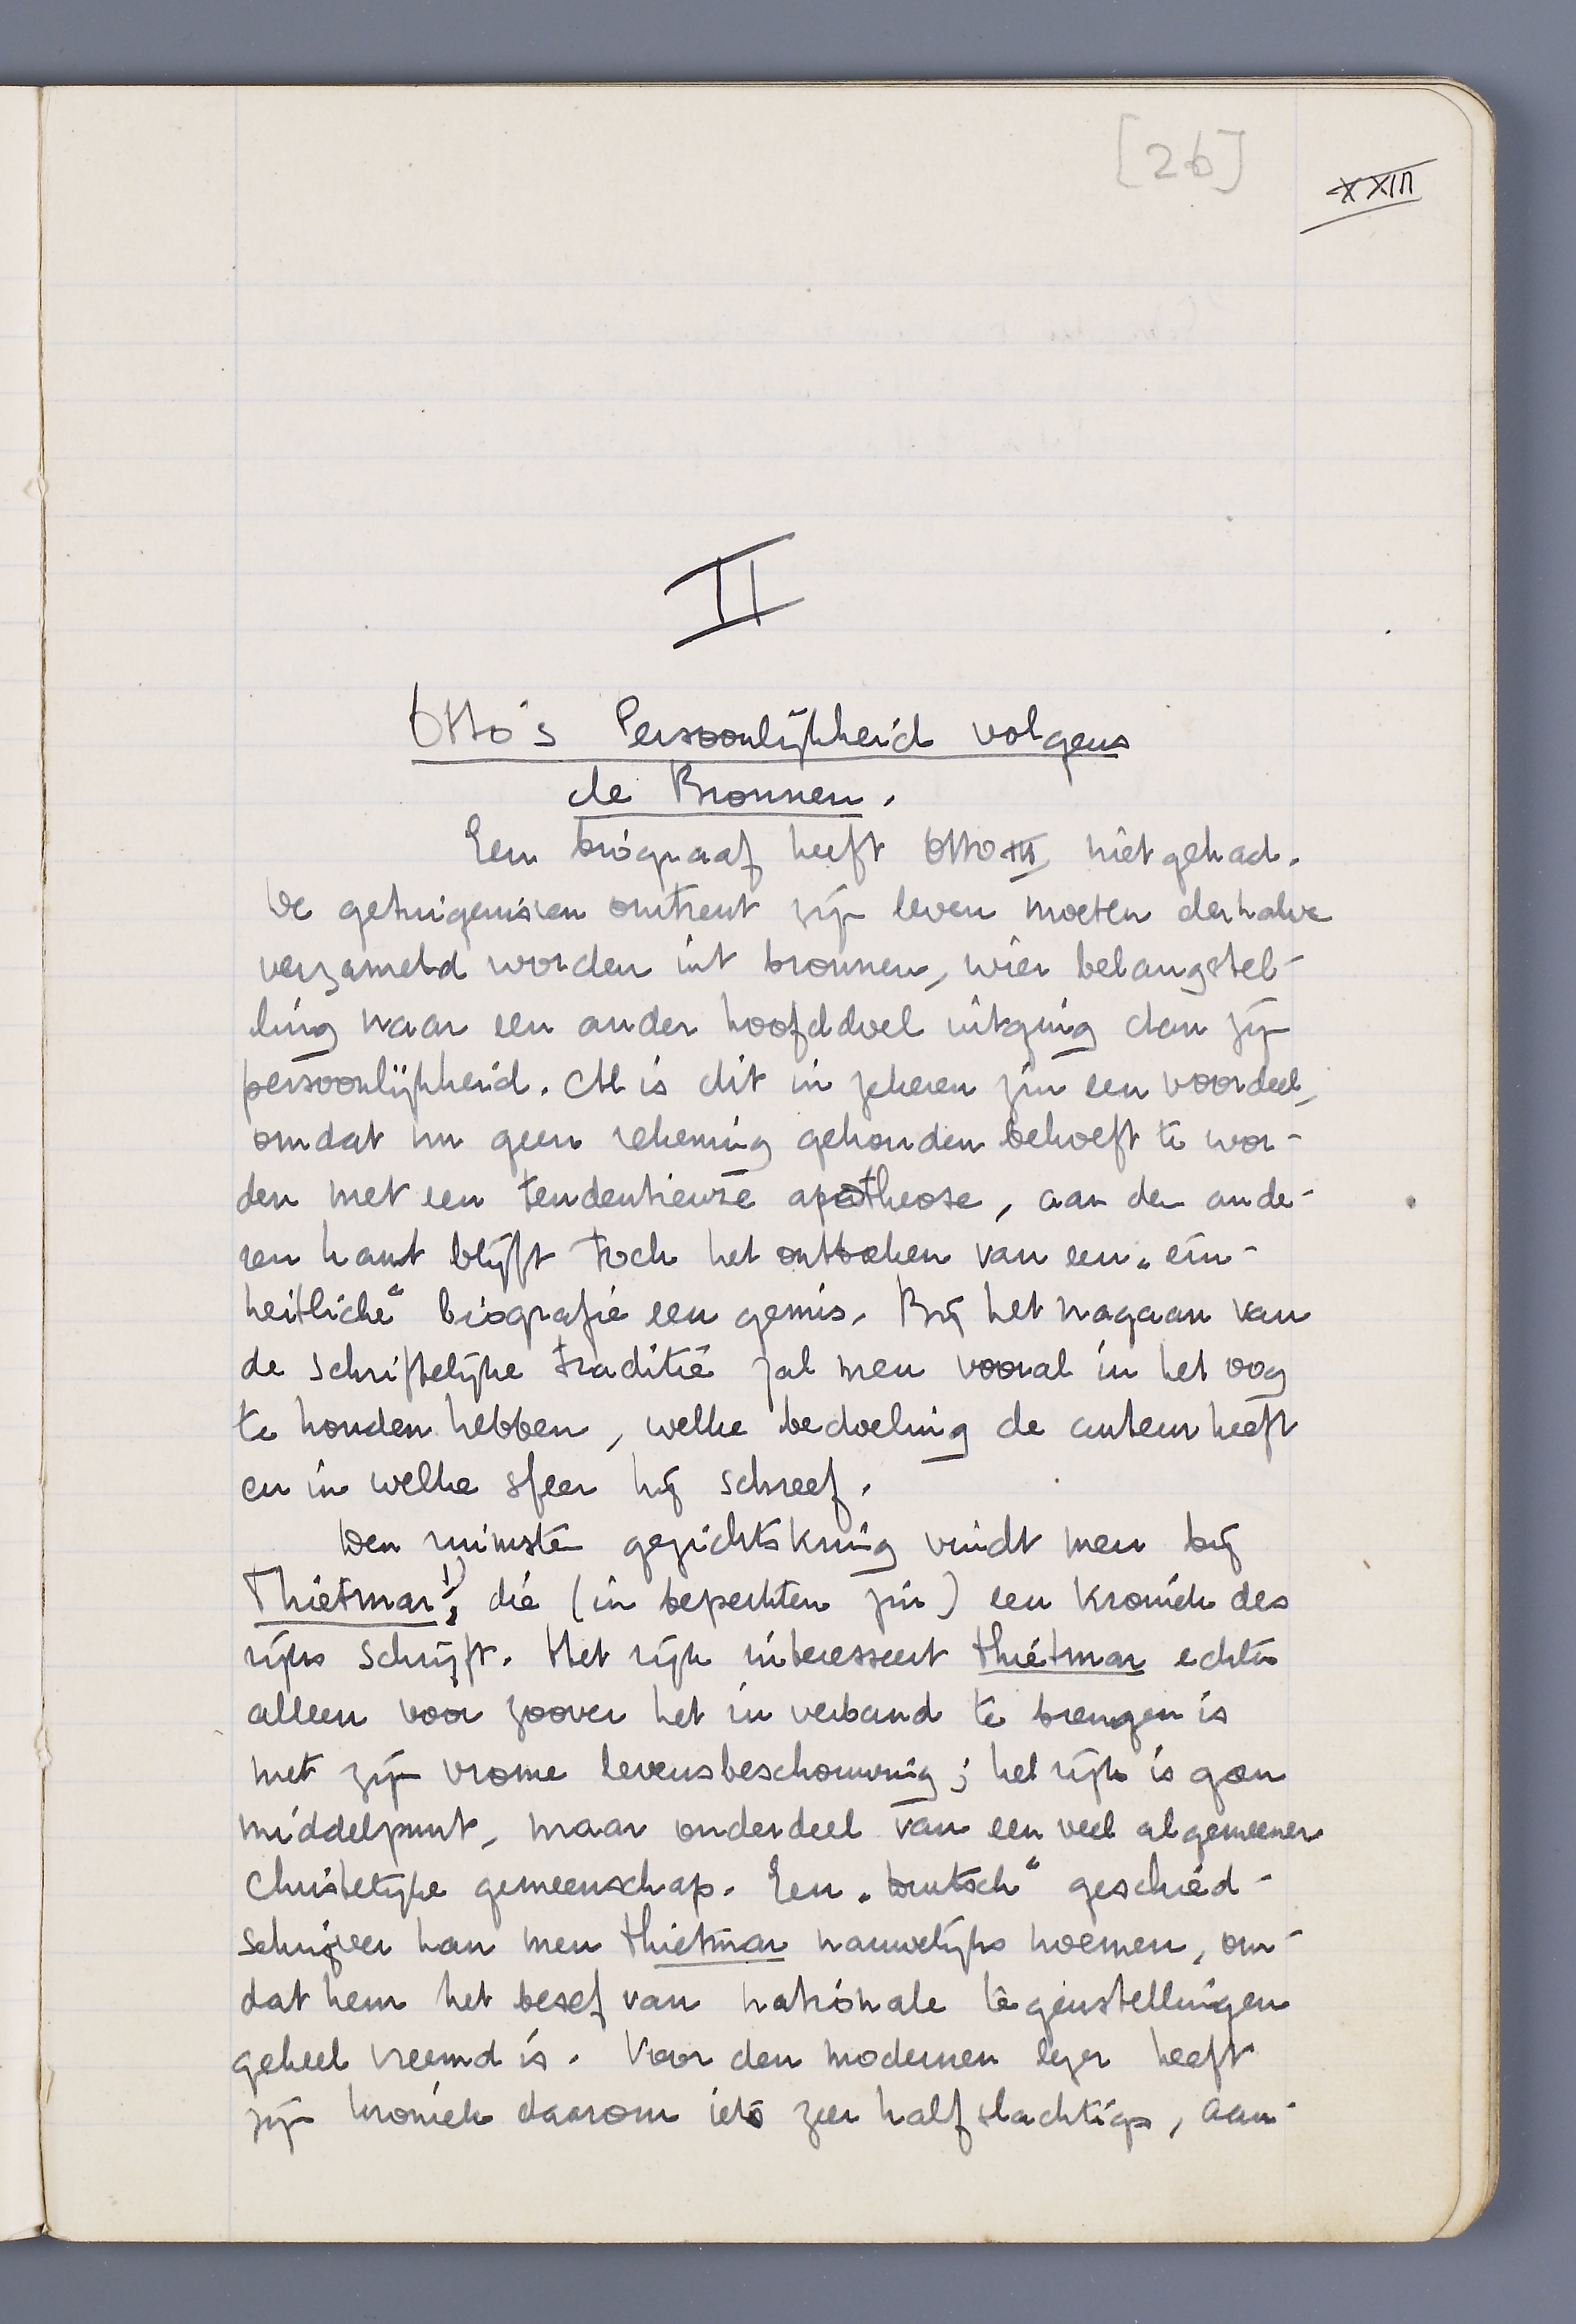 [26]
XXIII
II
Otto's Persoonlijkheid volgens
de Bronnen.
Een biograaf heeft Otto III niet gehad.
De getuigenissen omtrent zijn leven moeten derhalve
verzameld worden uit bronnen, wier belangstel-
ling naar een ander hoofddoel uitging dan zijn
persoonlijkheid. Al is dit in zekeren zin een voordeel,
omdat nu geen rekening gehouden behoeft te wor-
den met een tendentieuze apotheose, aan den ande-
ren kant blijft toch het ontbreken van een „ein-
heitliche“ biografie een gemis. Bij het nagaan van
de schriftelijke traditie zal men vooral in het oog
te houden hebben, welke bedoeling de auteur heeft
en in welke sfeer hij schreef.
Den ruimsten gezichtskring vindt men bij
Thietmar 1), die (in beperkten zin) een kroniek des
rijks schrijft. Het rijk interesseert Thietmar echter
alleen voor zoover het in verband te brengen is
met zijn vrome levensbeschouwing; het rijk is geen
middelpunt, maar onderdeel van een veel algemeener
christelijke gemeenschap. Een „Duitsch“ geschied-
schrijver kan men Thietmar nauwelijks noemen, om-
dat hem het besef van nationale tegenstellingen
geheel vreemd is. Voor den modernen lezer heeft
zijn kroniek daarom iets zeer halfslachtigs, aan-